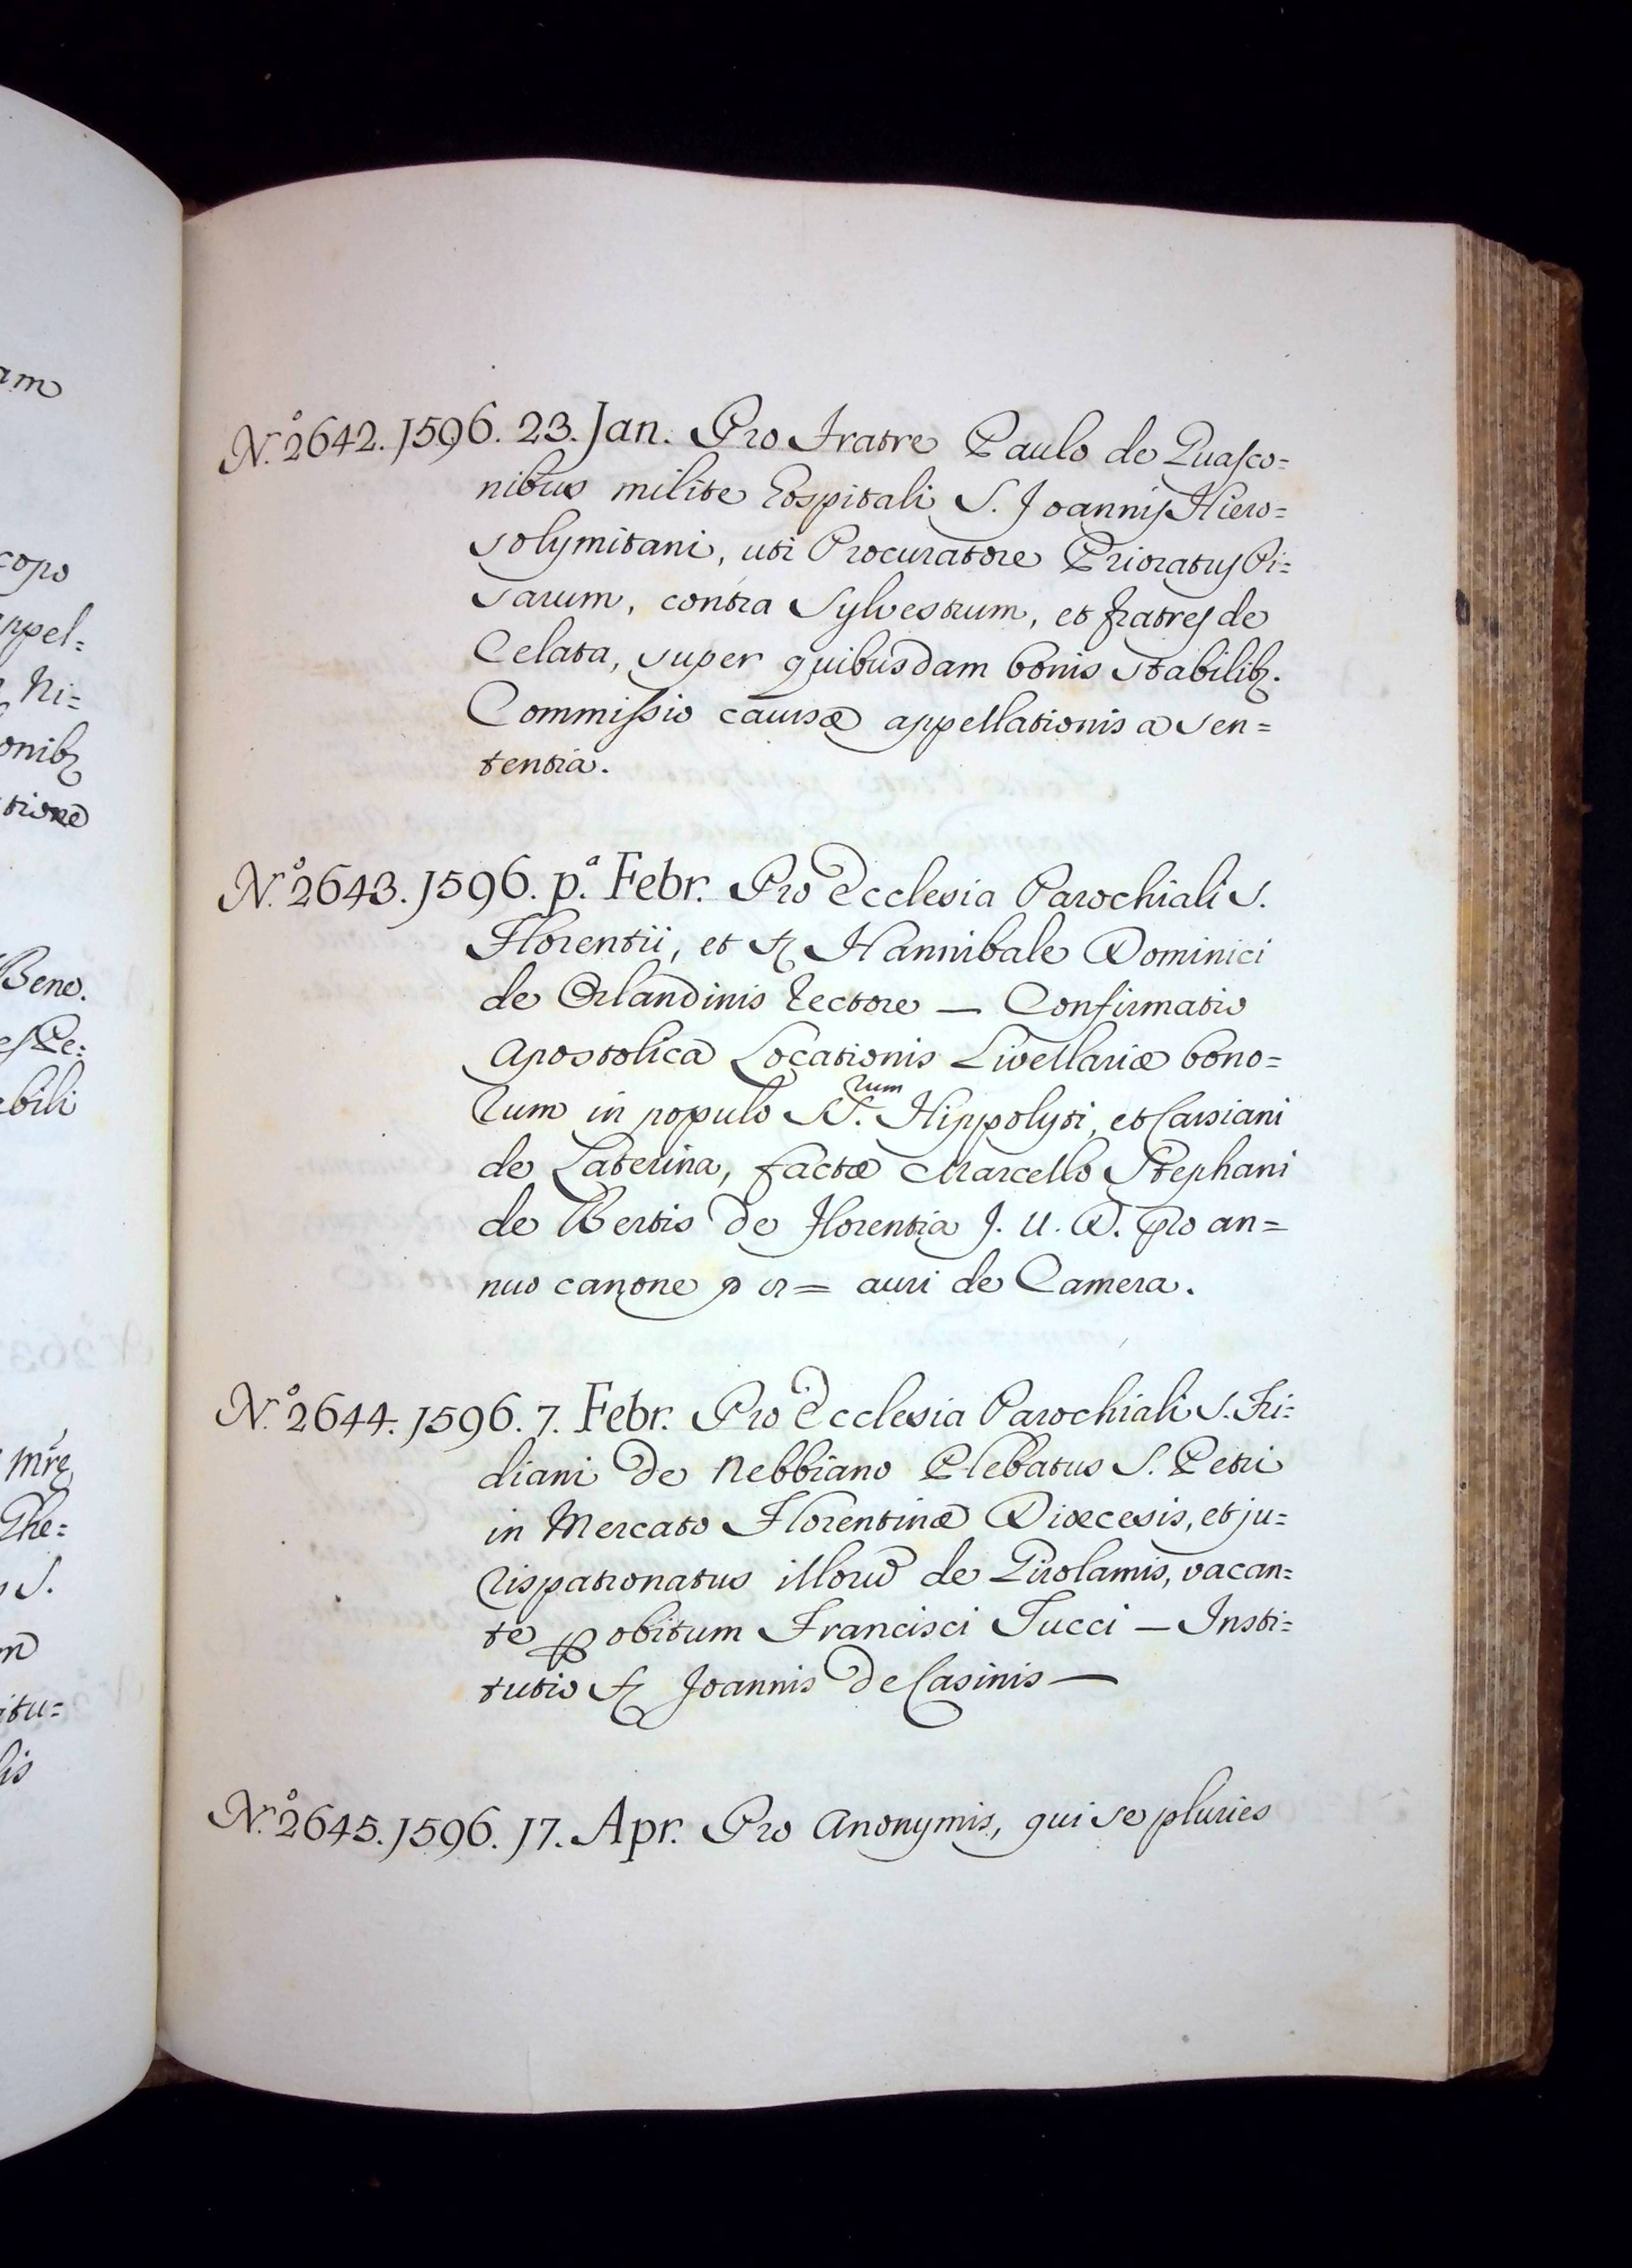 am
copo
ppel=
Ni=
onibȝ
tione
Bene.
es Pe:
ebili
mr̃e
Ghe=
S.
itu=
lis
N.º 2642. 1596. 23. Jan. Pro Fratre Paulo de Guasco=
nibus milite hospitali S. Joannis Hiero=
solymitani, uti Procuratore Prioratus Pi=
sarum, contra Sylvestrum, et fratres de
Celata, super quibusdam bonis stabilibȝ.
Commissio causæ appellationis a sen=
tentia.
N.º 2643. 1596. p.ª Febr. Pro Ecclesia Parochiali S.
Florentii, et Hannibale Dominici
de Orlandinis rectore — Confirmatio
Apostolica Locationis Livellariæ bono=
rum in populo SS.rum Hippolyti, et Cassiani
de Laterina, factæ Marcello Stephani
de Bertis de Florentia J. U. D. pro an=
nuo canone auri de Camera.
N.º 2644. 1596. 7. Febr. Pro Ecclesia Parochiali S. Fri=
diani de Nebbiano Plebatus S. Petri
in Mercato Florentinæ Diœcesis, et ju=
rispatronatus illorũ de Girolamis, vacan=
te ꝑ obitum Francisci Tucci — Insti=
tutio Joannis de Casinis —
N.º 2645. 1596. 17. Apr. Pro Anonymis, qui se pluries